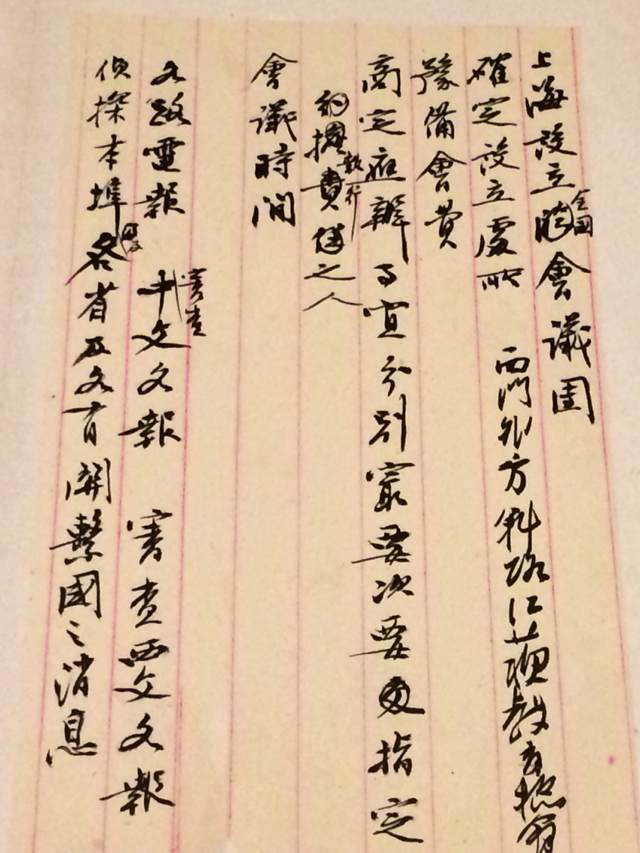 上海設立臨會議團
全國
確定設立處所 西門外方斜路江蘇教育總會
豫備會費
商定應辦事宜分別最要次要及指定
執行
擔責任之人
會議時間
各路電報 中文各報 審查西文各報
審查
偵探本埠各省及各有關繫國之消息